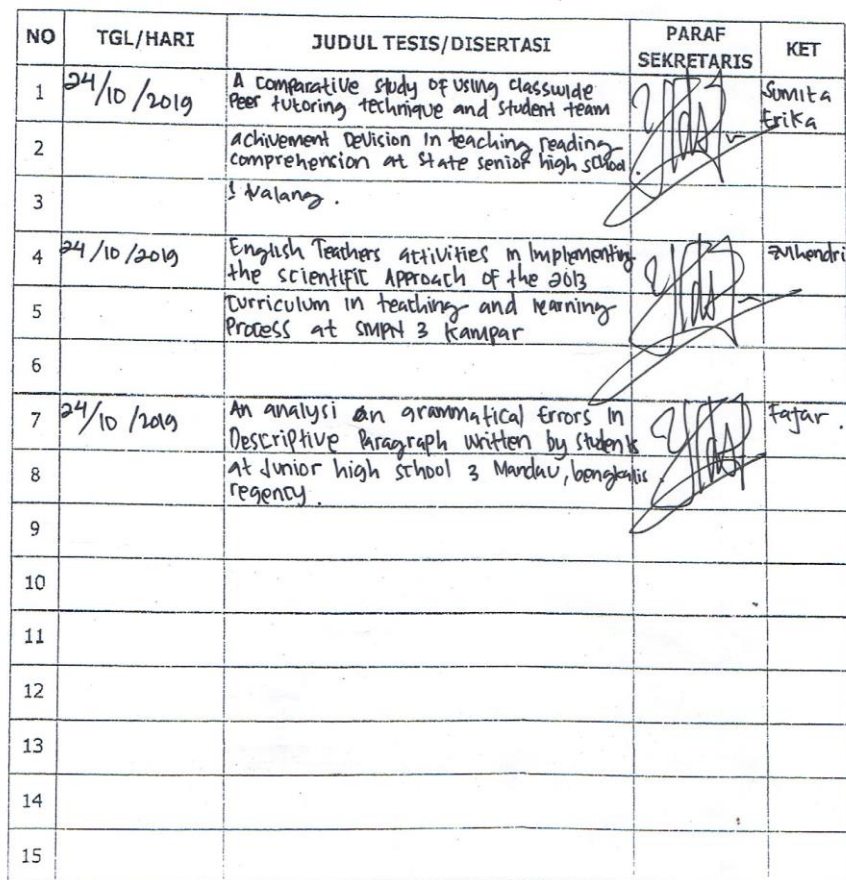 NO TGL/HARI JUDUL TESIS/DISERTASI PARAF SEKRETARIS KET
1 24/10/2019 A Comparative study of using classwide Sumita
Peer tutoring technique and student team Erika
2 achivement Devision in teaching reading
comprehension at State senior high school
3 1
4 24/10/2019 English Teachers activities in Implementing Zulhendri
the scientific Approach of the 2013
5 Curriculum in teaching and learning
Process at SMPN 3 Kampar
6
7 24/10/2019 An analysi on grammatical Errors in Fajar.
Descriptive Paragraph written by students
8 at Junior high school 3 Mandau, bengkalis
regency.
9
10
11
12
13
14
15